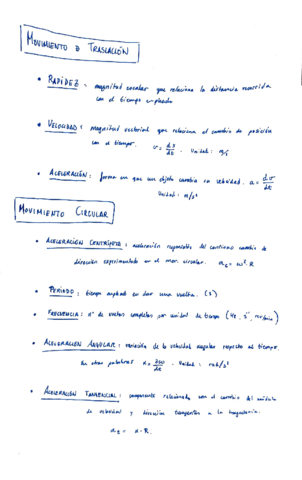 MOVIMIENTO D TRASLACIÓN
• RAPIDEZ: magnitud escalar que relaciona la distancia recorrida
con el tiempo empleado
• VELOCIDAD: magnitud vectorial que relaciona el cambio de posición
con el tiempo. v = dr/dt . Unidad: m/s
• ACELERACIÓN: forma en que un objeto cambia su velocidad. a = dv/dt
Unidad: m/s²
MOVIMIENTO CIRCULAR
• ACELERACIÓN CENTRÍPETA: aceleración responsable del continuo cambio de
dirección experimentado en el mov. circular. ac = ω²·R
• PERIODO: tiempo empleado en dar una vuelta. (s)
• FRECUENCIA: nº de vueltas completas por unidad de tiempo (Hz, s⁻¹, rev/min)
• ACELERACIÓN ANGULAR: variación de la velocidad angular respecto al tiempo.
En otras palabras α = dω/dt . Unidad: rad/s²
• ACELERACIÓN TANGENCIAL: componente relacionada con el cambio del módulo
de velocidad y dirección tangente a la trayectoria.
at = α·R.